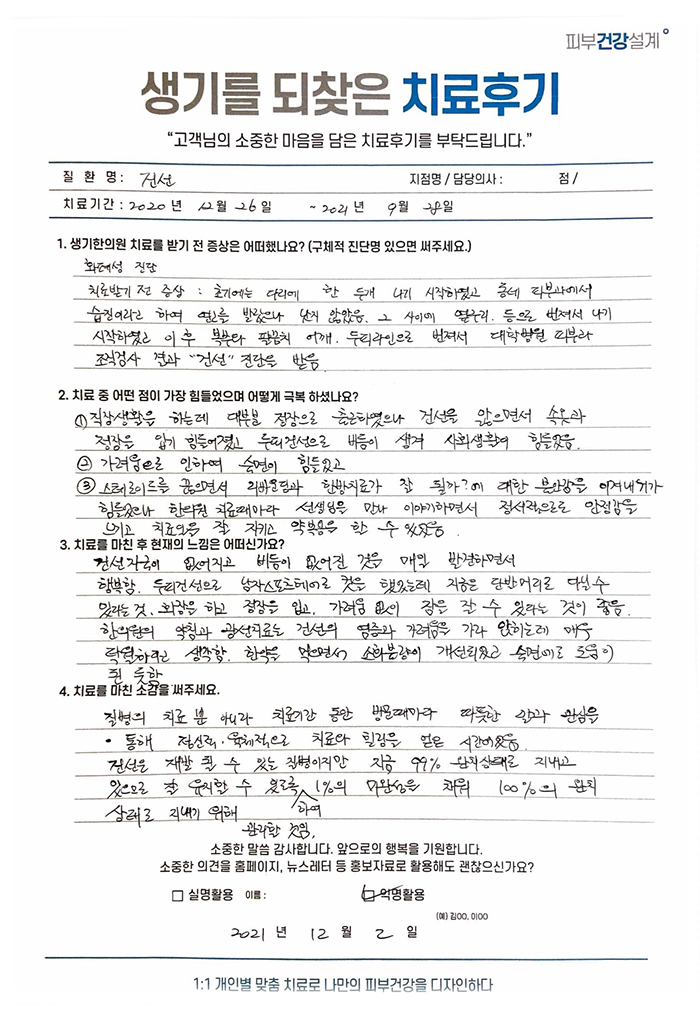 피부건강설계
생기를 되찾은 치료후기
“고객님의 소중한 마음을 담은 치료후기를 부탁드립니다.”
질 환 명 : 건선 지점명 / 담당의사 : 점 /
치료기간 : 2020 년 12 월 26 일 ~ 2021 년 9 월 28 일
1. 생기한의원 치료를 받기 전 증상은 어떠했나요? (구체적 진단명 있으면 써주세요.)
진단
치료받기 전 증상 : 초기에는 다리에 한 두개 나기 시작하였고 동네 피부과에서
습진이라고 하여 연고를 발랐으나 낫지 않았음. 그 사이에 옆구리. 등으로 번져서 나기
시작하였고 이후 복부와 팔꿈치 어깨. 두피라인으로 번져서 대학병원 피부과
조직검사 결과 "건선" 진단을 받음
2. 치료 중 어떤 점이 가장 힘들었으며 어떻게 극복 하셨나요?
① 직장생활을 하는데 대부분 정장으로 출근하였으나 건선을 앓으면서 속옷과
정장을 입기 힘들어졌고 두피건선으로 비듬이 생겨 사회생활이 힘들었음.
② 가려움으로 인하여 숙면이 힘들었고
③ 스테로이드를 끊으면서 리바운딩과 한방치료가 잘 될까?에 대한 불안감을 이겨내기가
힘들었으나 한의원 치료때마다 선생님을 만나 이야기하면서 정서적으로 안정감을
느끼고 치료요음 잘 지키고 약복용을 할 수 있었음.
3. 치료를 마친 후 현재의 느낌은 어떠신가요?
건선자국이 없어지고 비듬이 없어진 것을 매일 발견하면서
행복함. 두피건선으로 남자스포츠헤어로 컷을 했었는데 지금은 단발머리로 다닐수
있다는 것. 화장을 하고 정장을 입고, 가려움 없이 잠을 잘 수 있다는 것이 좋음.
한의원의 약침과 광선치료는 건선의 염증과 가려움을 가라 앉히는데 매우
탁월하다고 생각함. 한약을 먹으면서 소화불량이 개선되었고 숙면에도 도움이
된 듯함
4. 치료를 마친 소감을 써주세요.
질병의 치료 뿐 아니라 치료기간 동안 방문때마다 따뜻한 관심을
통해 정신적·육체적으로 치료와 힐링을 얻은 시간이었음.
건선은 재발 될 수 있는 질병이지만 지금 99% 완치상태로 지내고
있으므로 잘 유지할 수 있도록 하여 1%의 미완성을 채워 100%의 완치
상태로 지내기 위해
관리할 것임.
소중한 말씀 감사합니다. 앞으로의 행복을 기원합니다.
소중한 의견을 홈페이지, 뉴스레터 등 홍보자료로 활용해도 괜찮으신가요?
실명활용 이름 : 익명활용
(예) 김OO, 이OO
2021 년 12 월 2 일
1:1 개인별 맞춤 치료로 나만의 피부건강을 디자인하다